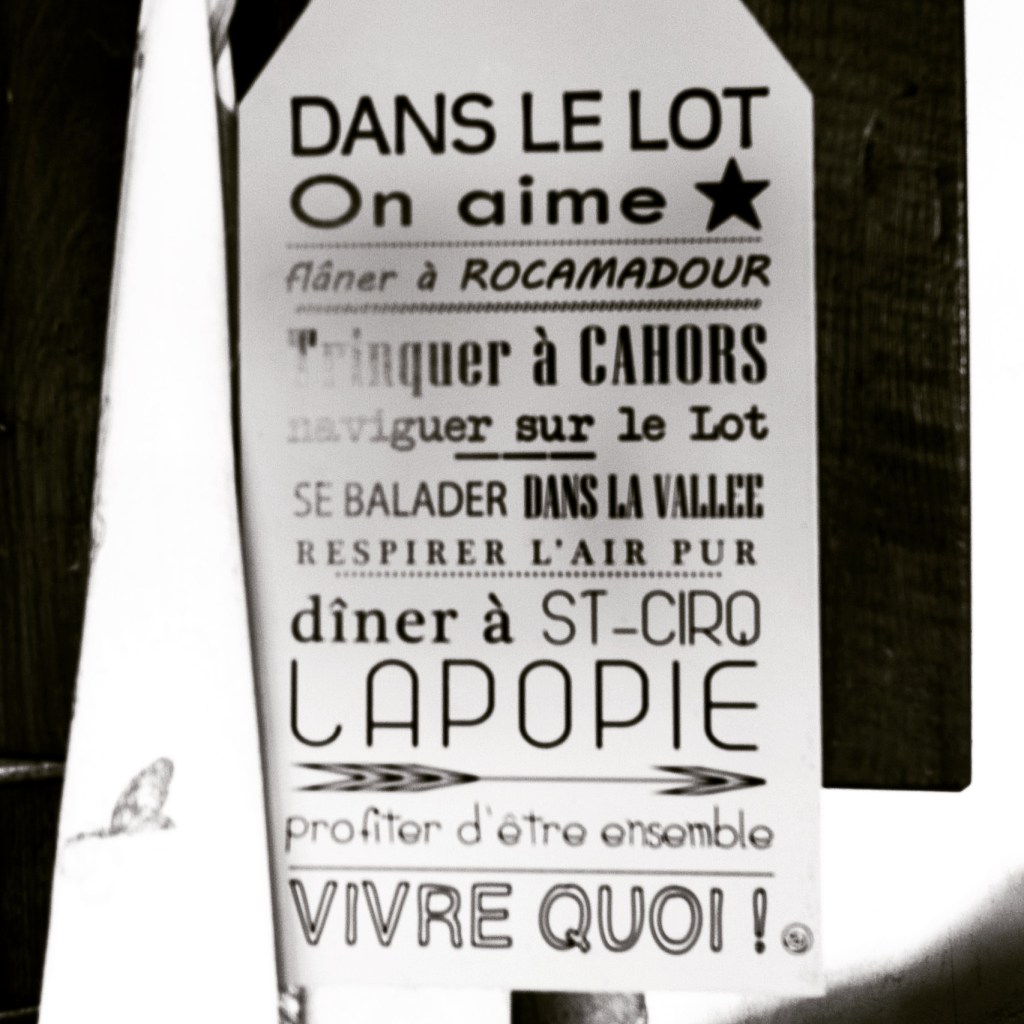 DANS LE LOT
On aime
flâner à ROCAMADOUR
Trinquer à CAHORS
naviguer sur le Lot
SE BALADER DANS LA VALLEE
RESPIRER L'AIR PUR
dîner à ST-CIRQ
LAPOPIE
profiter d'être ensemble
VIVRE QUOI !